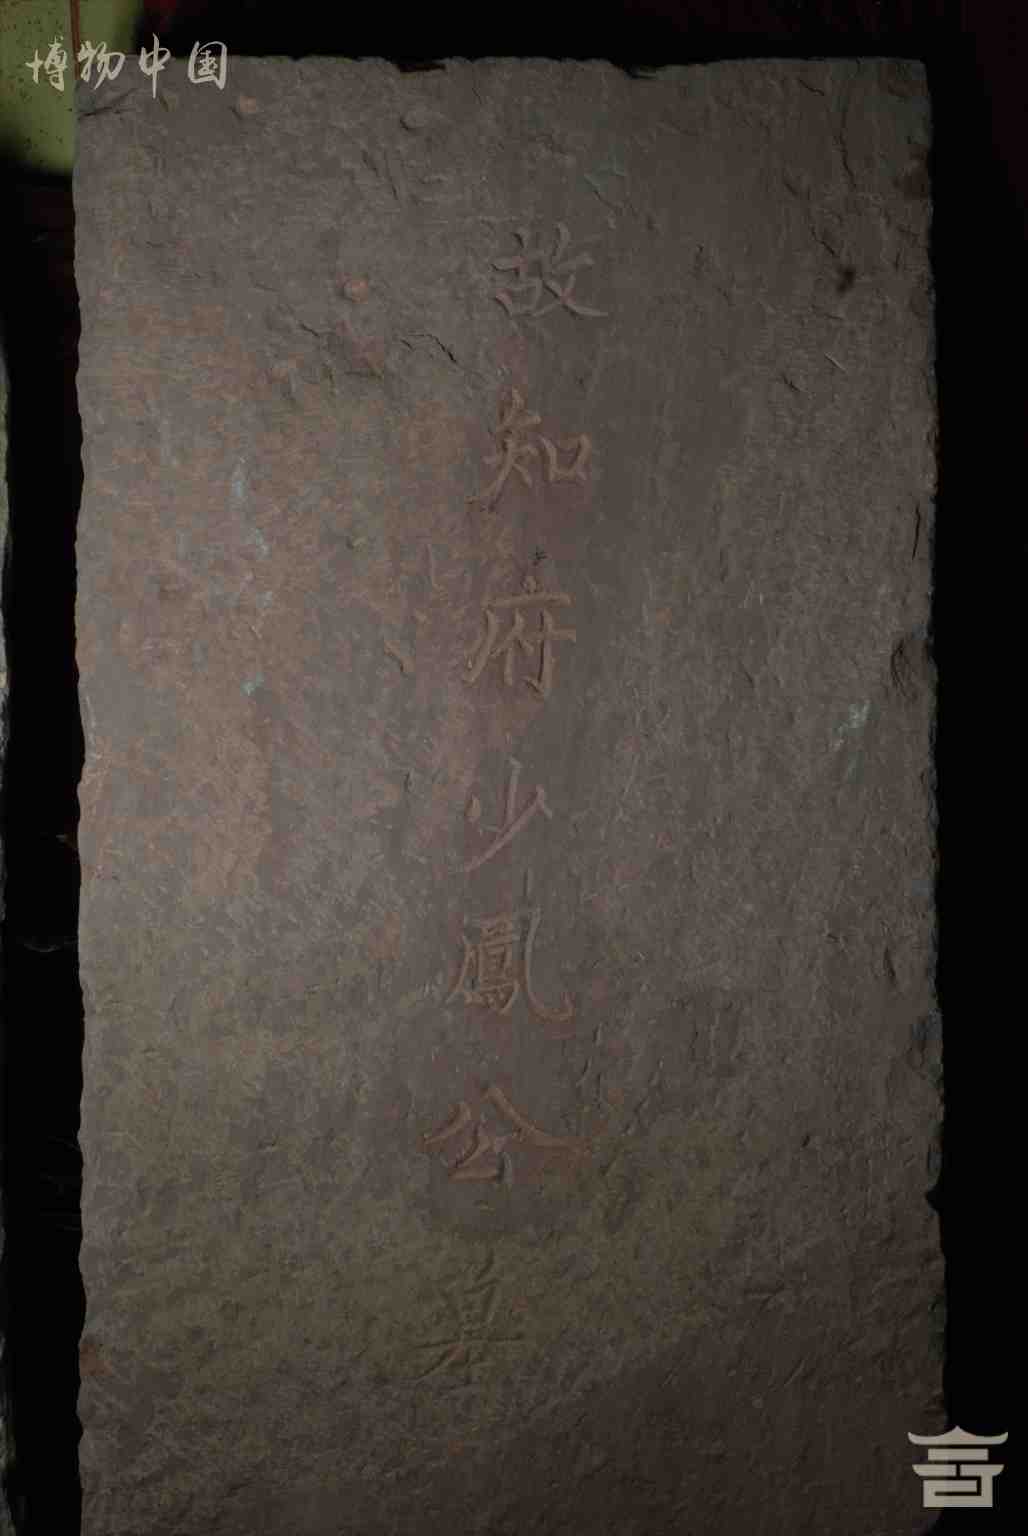 博物中国
故知府少鳳公墓